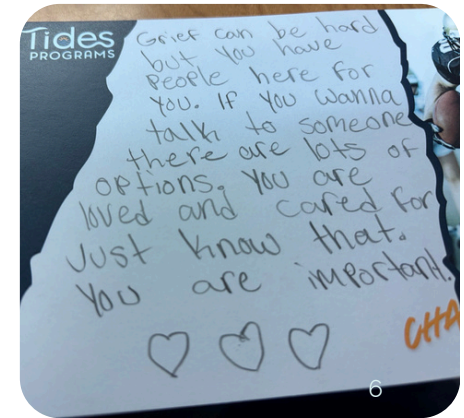 Tides
PROGRAMS
Grief can be hard
but you have
people here for
you. If you wanna
talk to someone
there are lots of
options. You are
loved and cared for
Just know that.
You are important.
CHA
6